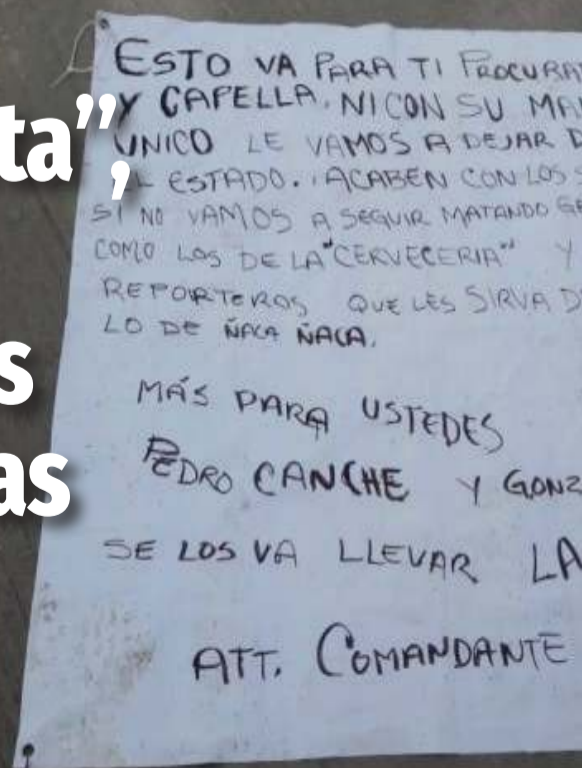 ta”,
s
as
ESTO VA PARA TI PROCURA
Y CAPELLA. NI CON SU MA
UNICO LE VAMOS A DEJAR
EL ESTADO. ACABEN CON LOS
SI NO VAMOS A SEGUIR MATANDO GE
COMO LOS DE LA "CERVECERIA" Y
REPORTEROS QUE LES SIRVA D
LO DE ÑACA ÑACA.
MÁS PARA USTEDES
PEDRO CANCHE Y GONZ
SE LOS VA LLEVAR LA
ATT. COMANDANTE